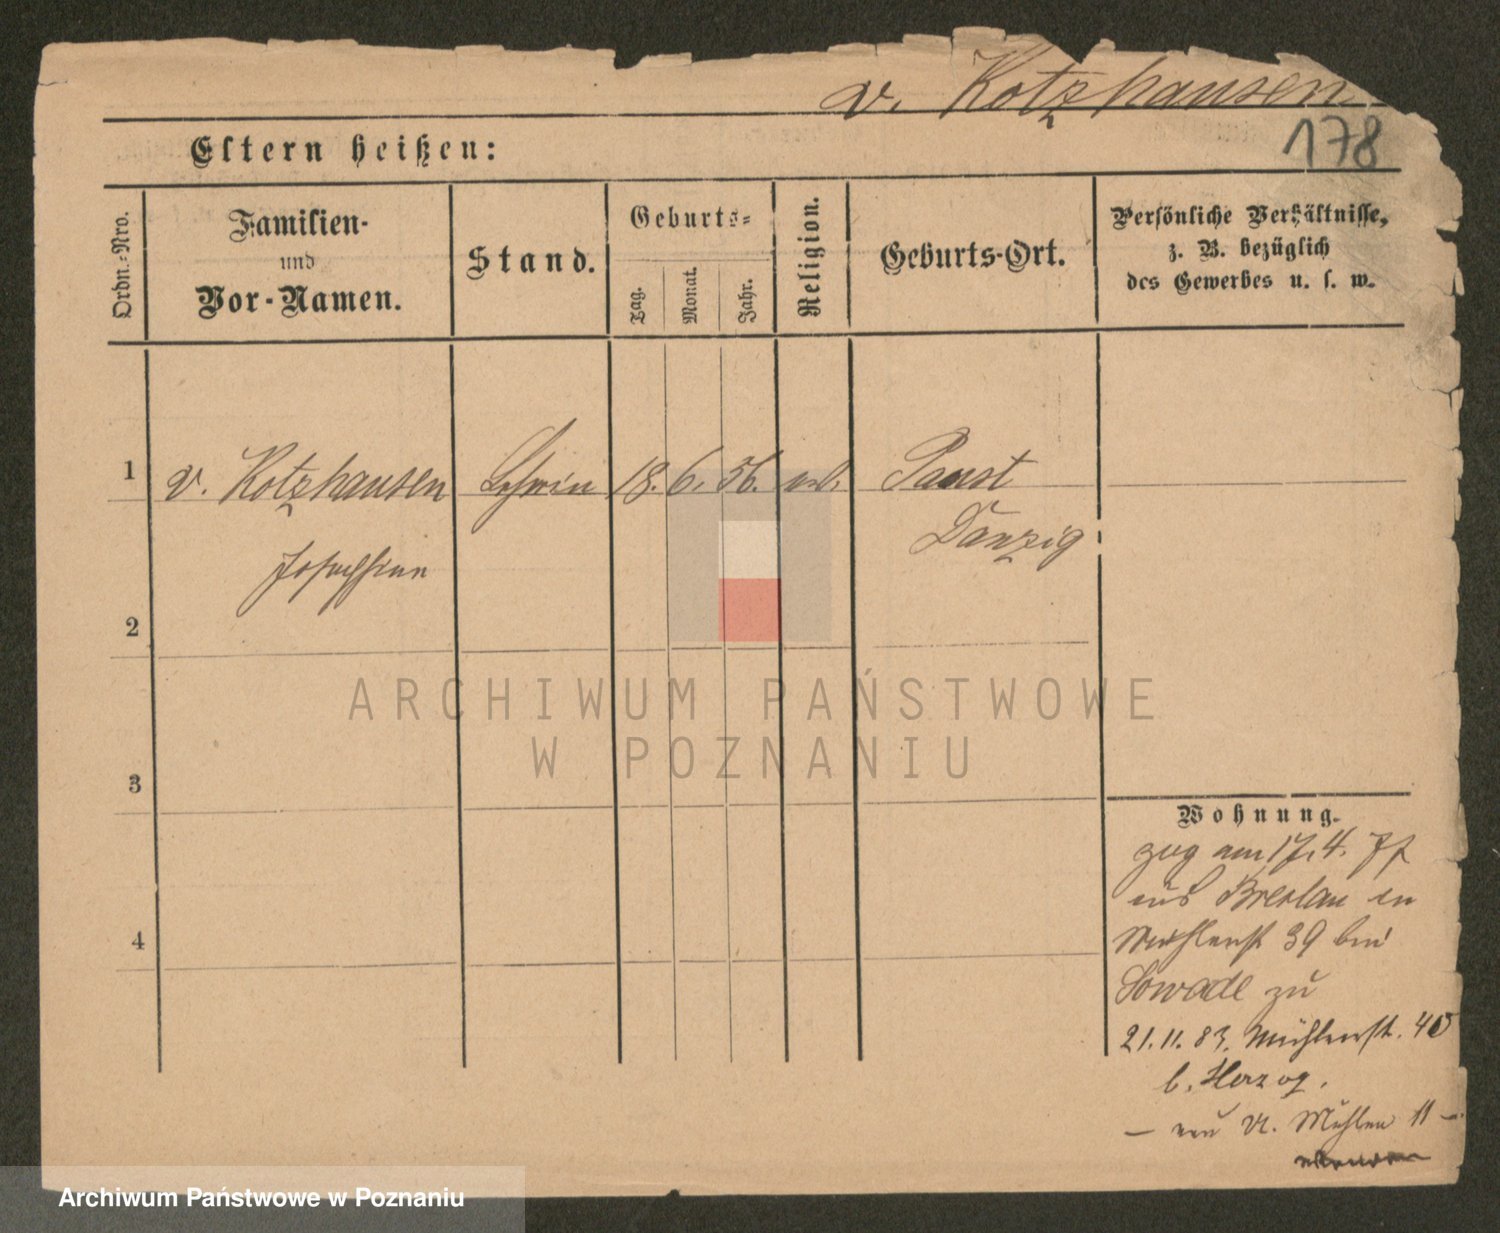 v. Kotzhausen
178
Eltern heißen:
Ordn.-Nro.
Familien-
und
Vor-Namen.
Stand.
Geburts-
Tag.
Monat.
Jahr.
Religion.
Geburts-Ort.
Persönliche Verhältnisse,
z. B. bezüglich
des Gewerbes u. s. w.
1 v. Kotzhausen 18. 6. 56.
Danzig
Josephine
2
3
4
Wohnung.
zog am 17.4.
aus Breslau in
Mühlenst 39 bei
Sowade zu
21.11.83. Mühlenst. 40
b. Herzog.
Mühlen 11 -
ARCHIWUM PAŃSTWOWE
W POZNANIU
Archiwum Państwowe w Poznaniu